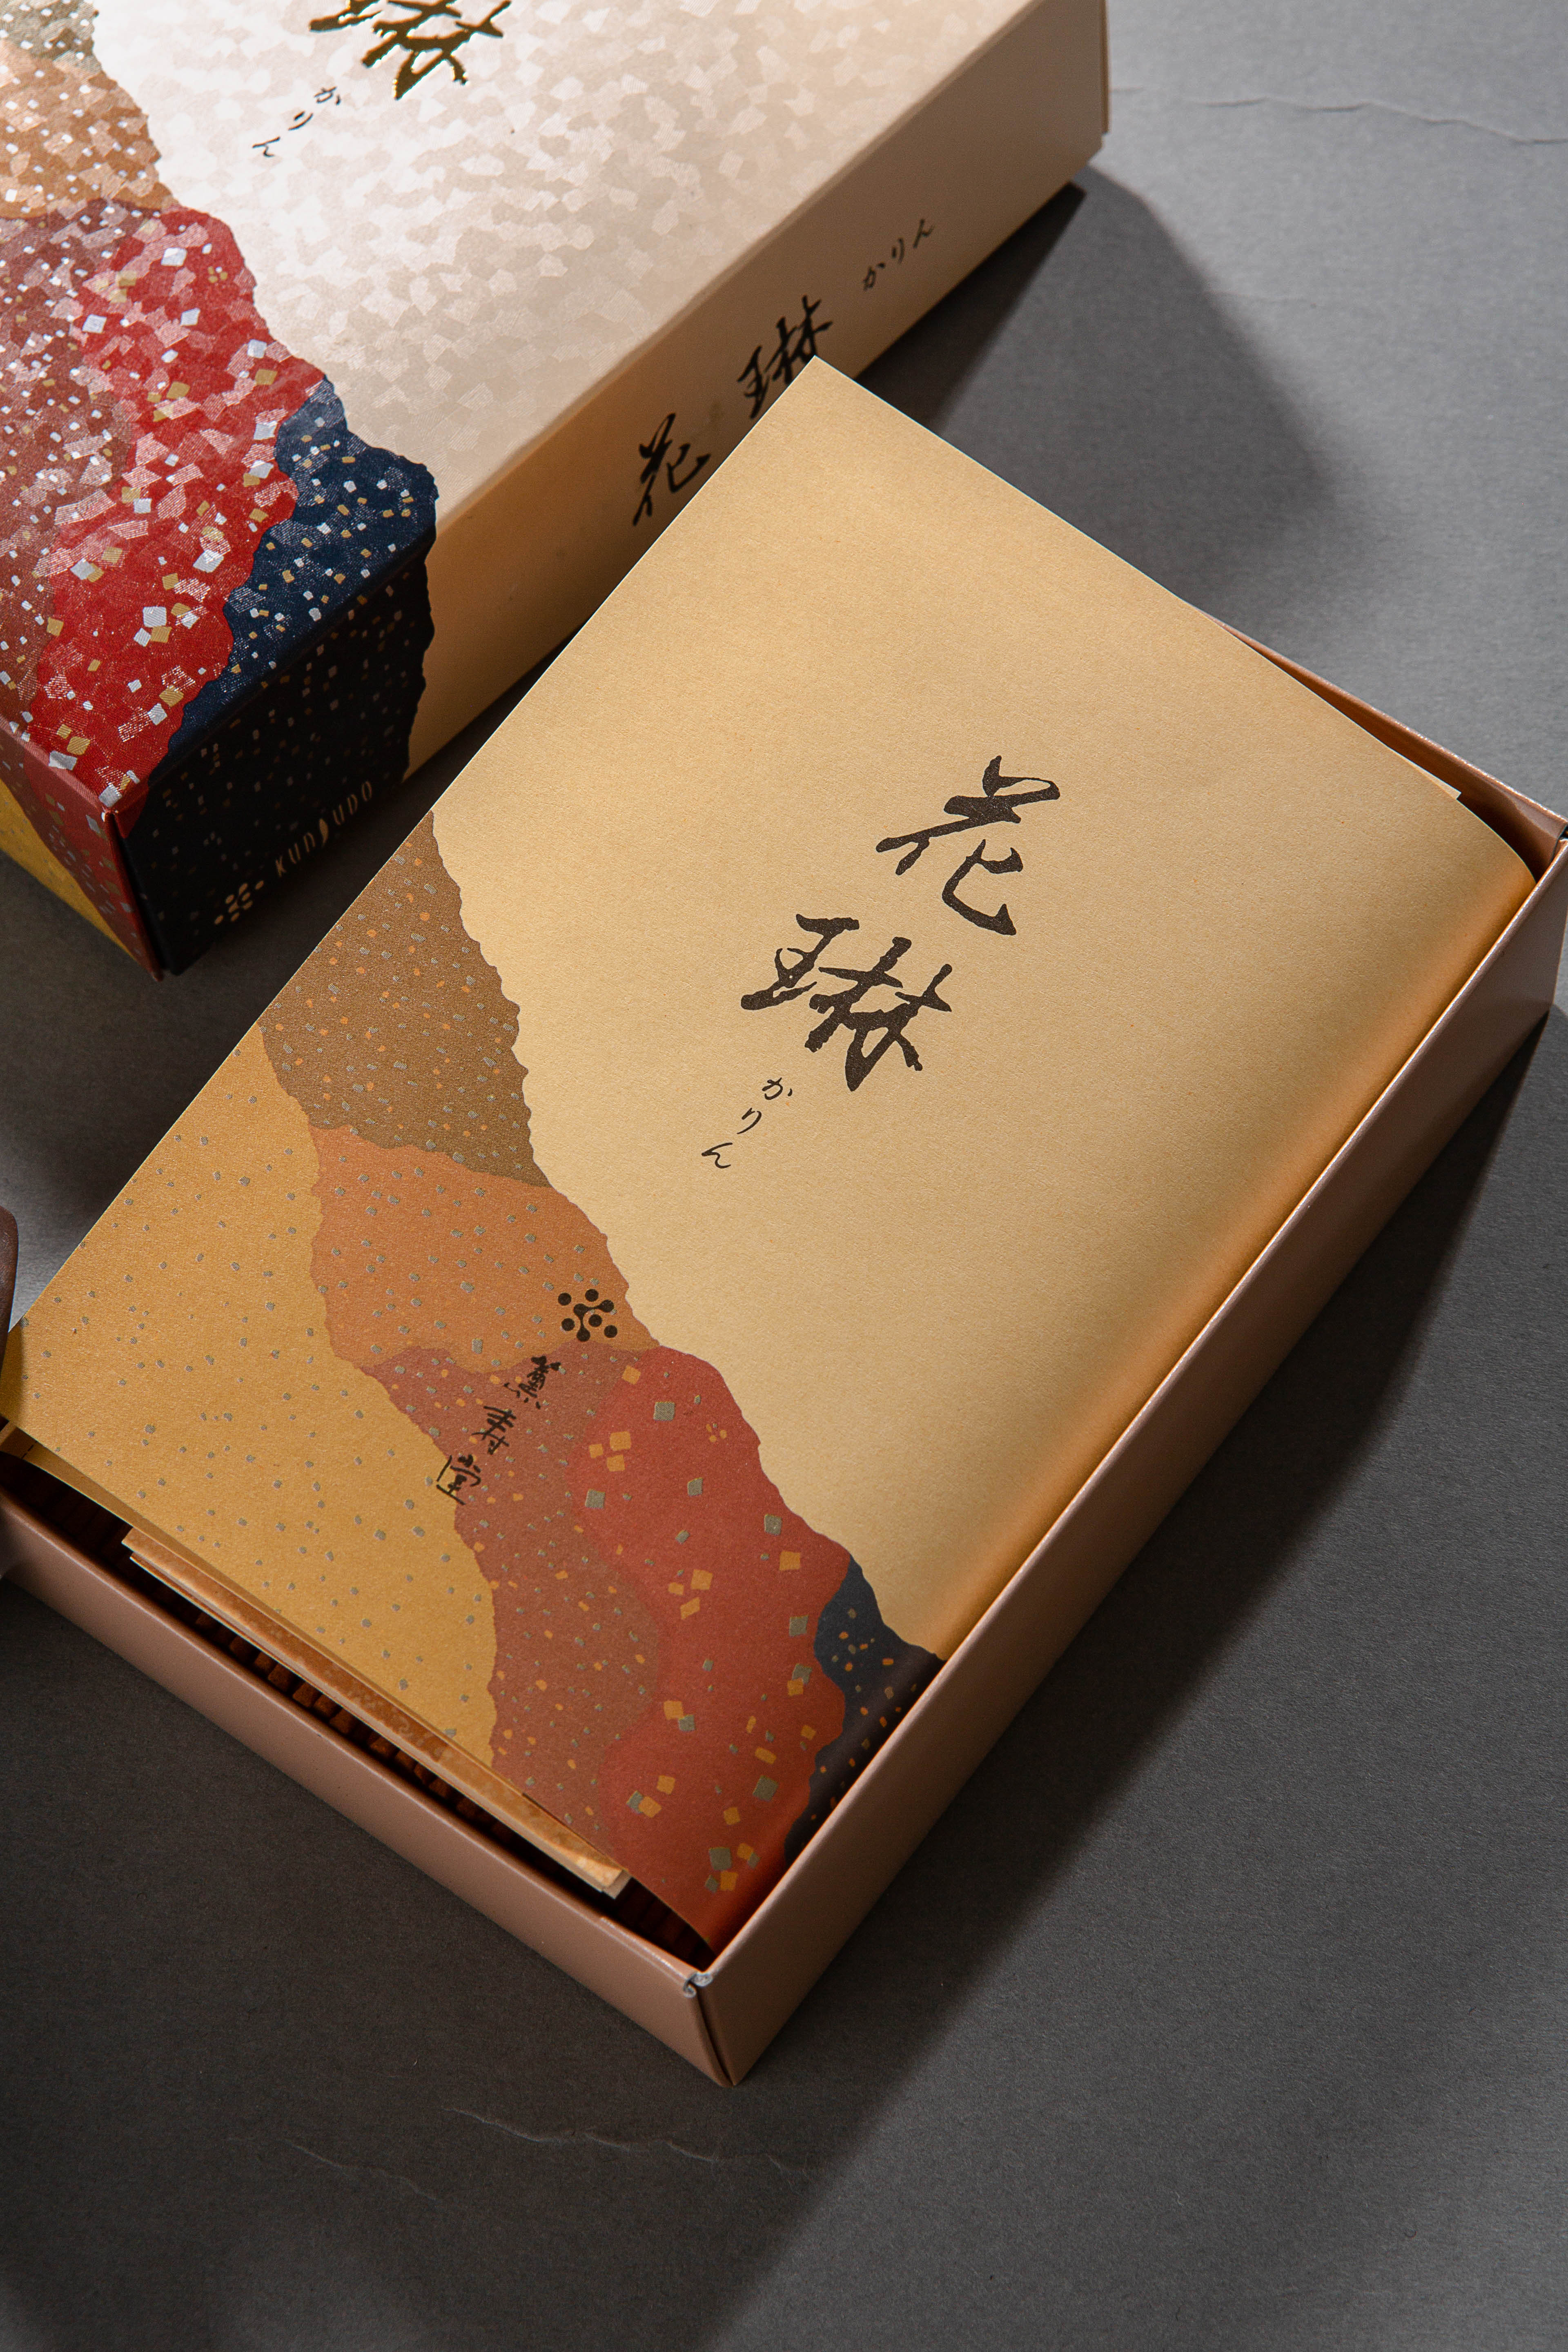 琳
かりん
花琳 かりん
KUNJUDO
花琳
かりん
薫寿堂